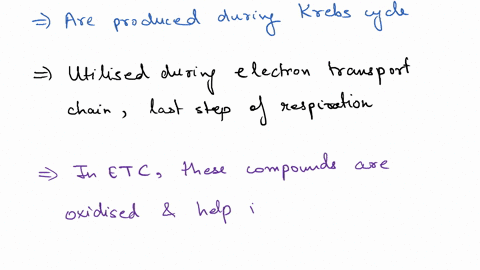 ⇒ Are produced during Krebs cycle
⇒ Utilised during electron transport
chain, last step of respiration
⇒ In ETC, these compounds are
oxidised & help i